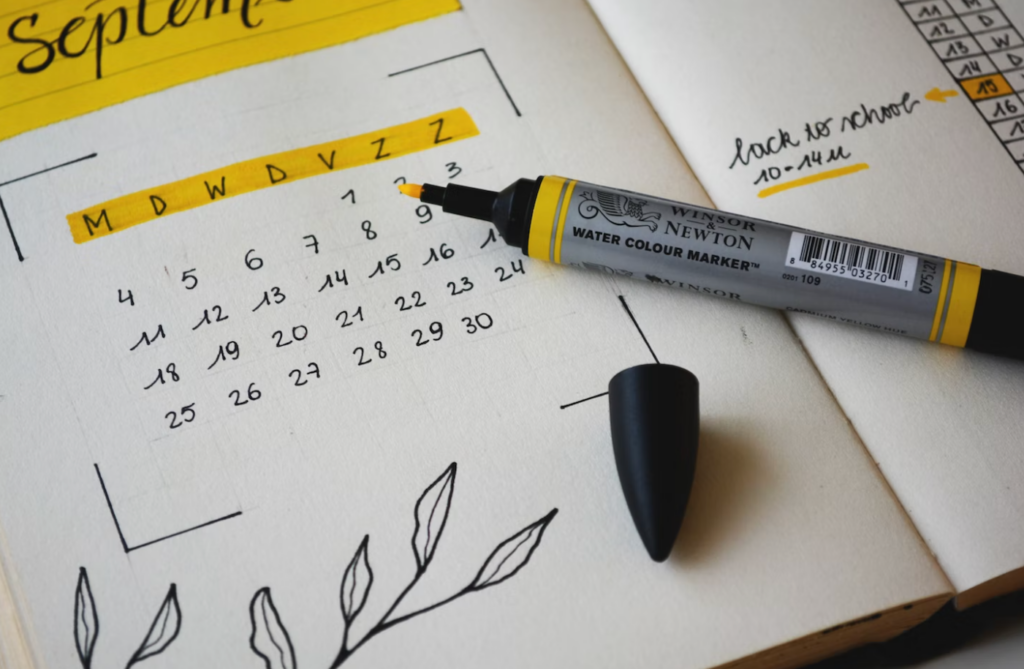 Septem
M D W D V Z Z
1 2 3
4 5 6 7 8 9
11 12 13 14 15 16
18 19 20 21 22 23 24
25 26 27 28 29 30
11 M
12 D
13 W
14 D
15
16
back to school
10-14u
WINSOR
&
NEWTON
WATER COLOUR MARKER™
8 84955 03270 1
0201 109
WINSOR